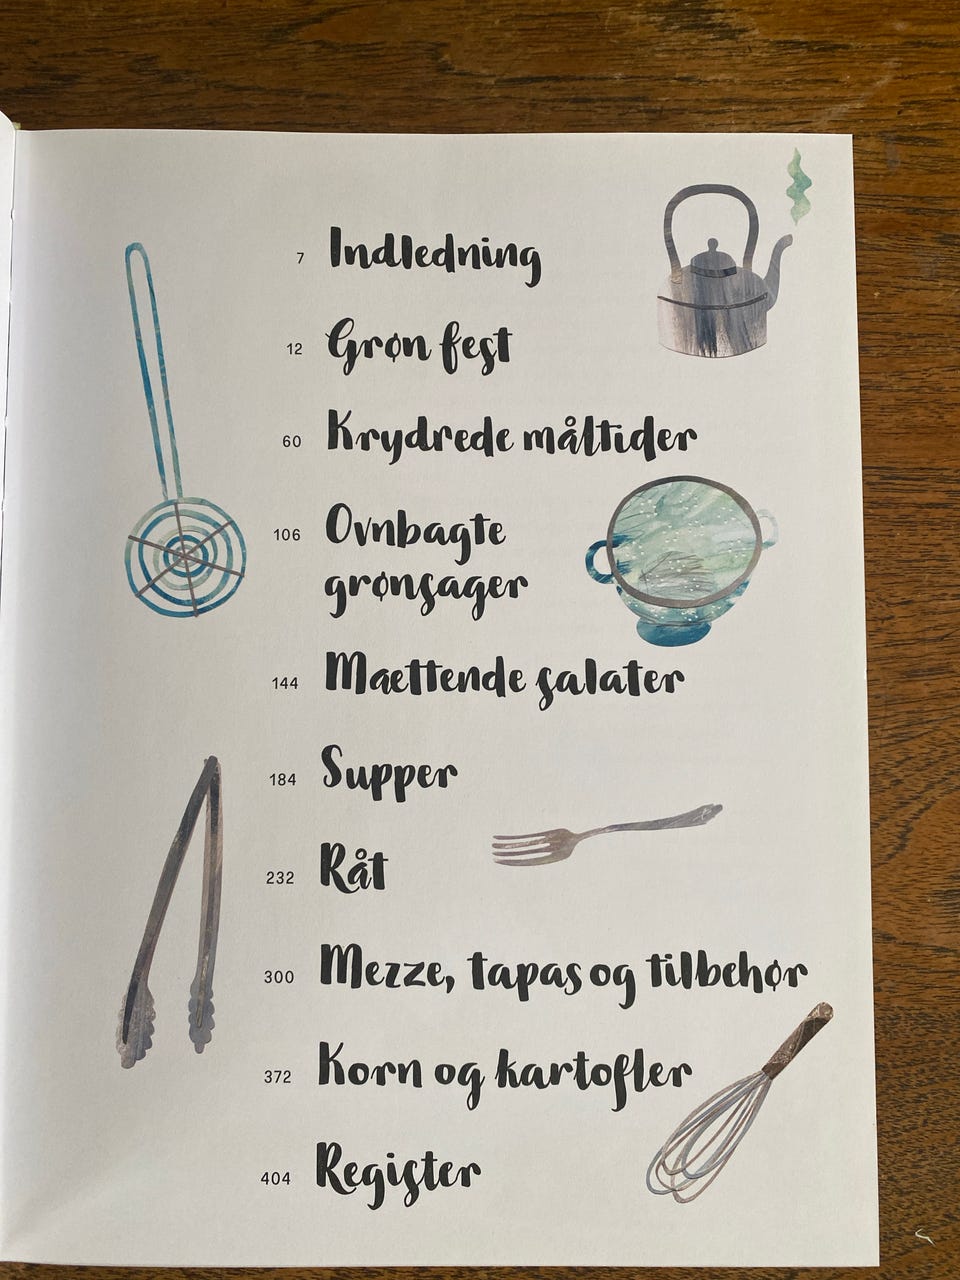 7 Indledning
12 Grøn fest
60 Krydrede måltider
106 Ovnbagte
grønsager
144 Mættende salater
184 Supper
232 Råt
300 Mezze, tapas og tilbehør
372 Korn og kartofler
404 Register